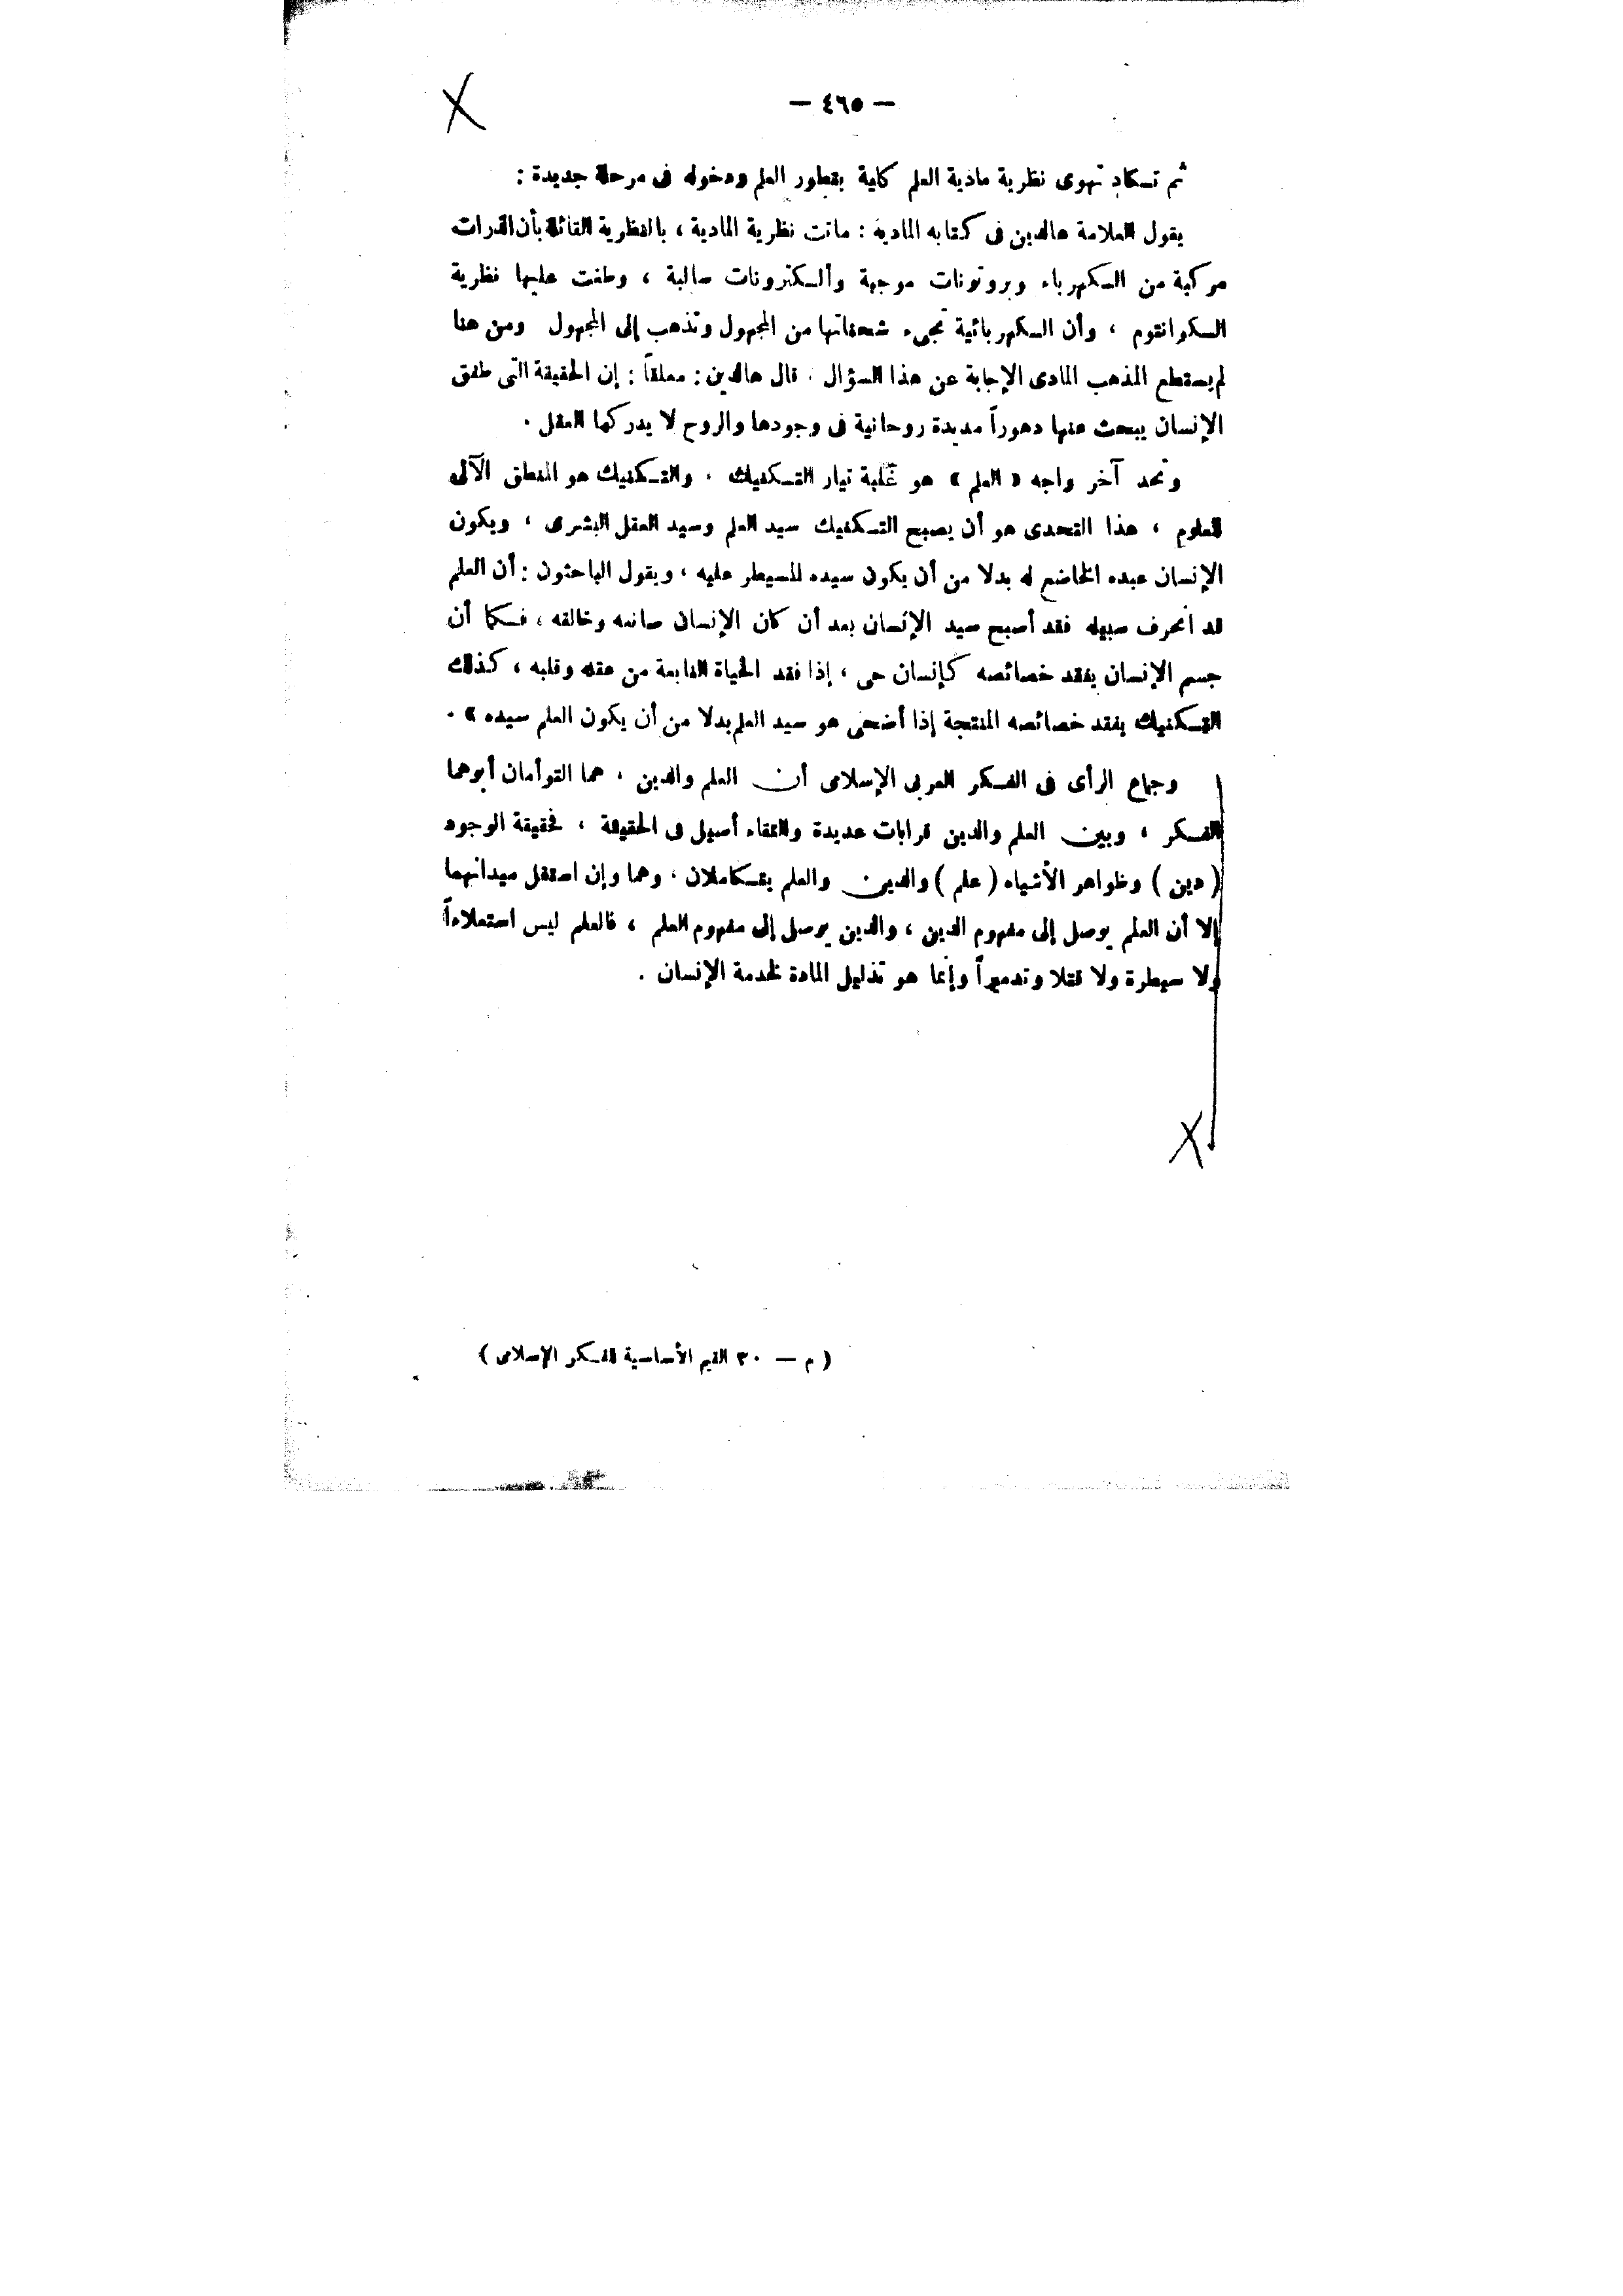 — ٤٦٥ —
ثم تكاد تهوى نظرية مادية العلم كلية بتطور العلم ودخوله فى مرحلة جديدة :
يقول العلامة هالدين فى كتابه المادية : ماتت نظرية المادية ، بالنظرية القائلة بأن الذرات
مركبة من الكهرباء وبروتونات موجبة وألكترونات سالبة ، وطغت عليها نظرية
الكوانتوم ، وأن الكهربائية تجىء شحناتها من المجهول وتذهب إلى المجهول ومن هنا
لم يستطع المذهب المادى الإجابة عن هذا السؤال . قال هالدين : معلقاً : إن الحقيقة التى طفق
الإنسان يبحث عنها دهوراً مديدة روحانية فى وجودها والروح لا يدركها العقل .
وتحد آخر واجه « العلم » هو غلبة تيار التكنيك . والتكنيك هو المنطق الآلى
للعلوم ، هذا التحدى هو أن يصبح التكنيك سيد العلم وسيد العقل البشرى ، ويكون
الإنسان عبده الخاضع له بدلا من أن يكون سيده المسيطر عليه ، ويقول الباحثون : أن العلم
قد انحرف سبيله فقد أصبح سيد الإنسان بعد أن كان الإنسان صانعه وخالقه ، فكما أن
جسم الإنسان يفقد خصائصه كإنسان حى ، إذا فقد الحياة النابعة من عقله وقلبه ، كذلك
التكنيك يفقد خصائصه المنتجة إذا أضحى هو سيد العلم بدلا من أن يكون العلم سيده » .
وجماع الرأى فى الفكر العربى الإسلامى أن العلم والدين . هما التوأمان أبوهما
الفكر ، وبين العلم والدين قرابات عديدة والتقاء أصيل فى الحقيقة ، فحقيقة الوجود
( دين ) وظواهر الأشياء ( علم ) والدين والعلم يتكاملان ، وهما وإن استقل ميدانهما
إلا أن العلم يوصل إلى مفهوم الدين ، والدين يوصل إلى مفهوم العلم ، فالعلم ليس استعلاءاً
ولا سيطرة ولا قتلا وتدميراً وإنما هو تذليل المادة لخدمة الإنسان .
( م — ٣٠ القيم الأساسية للفكر الإسلامى )